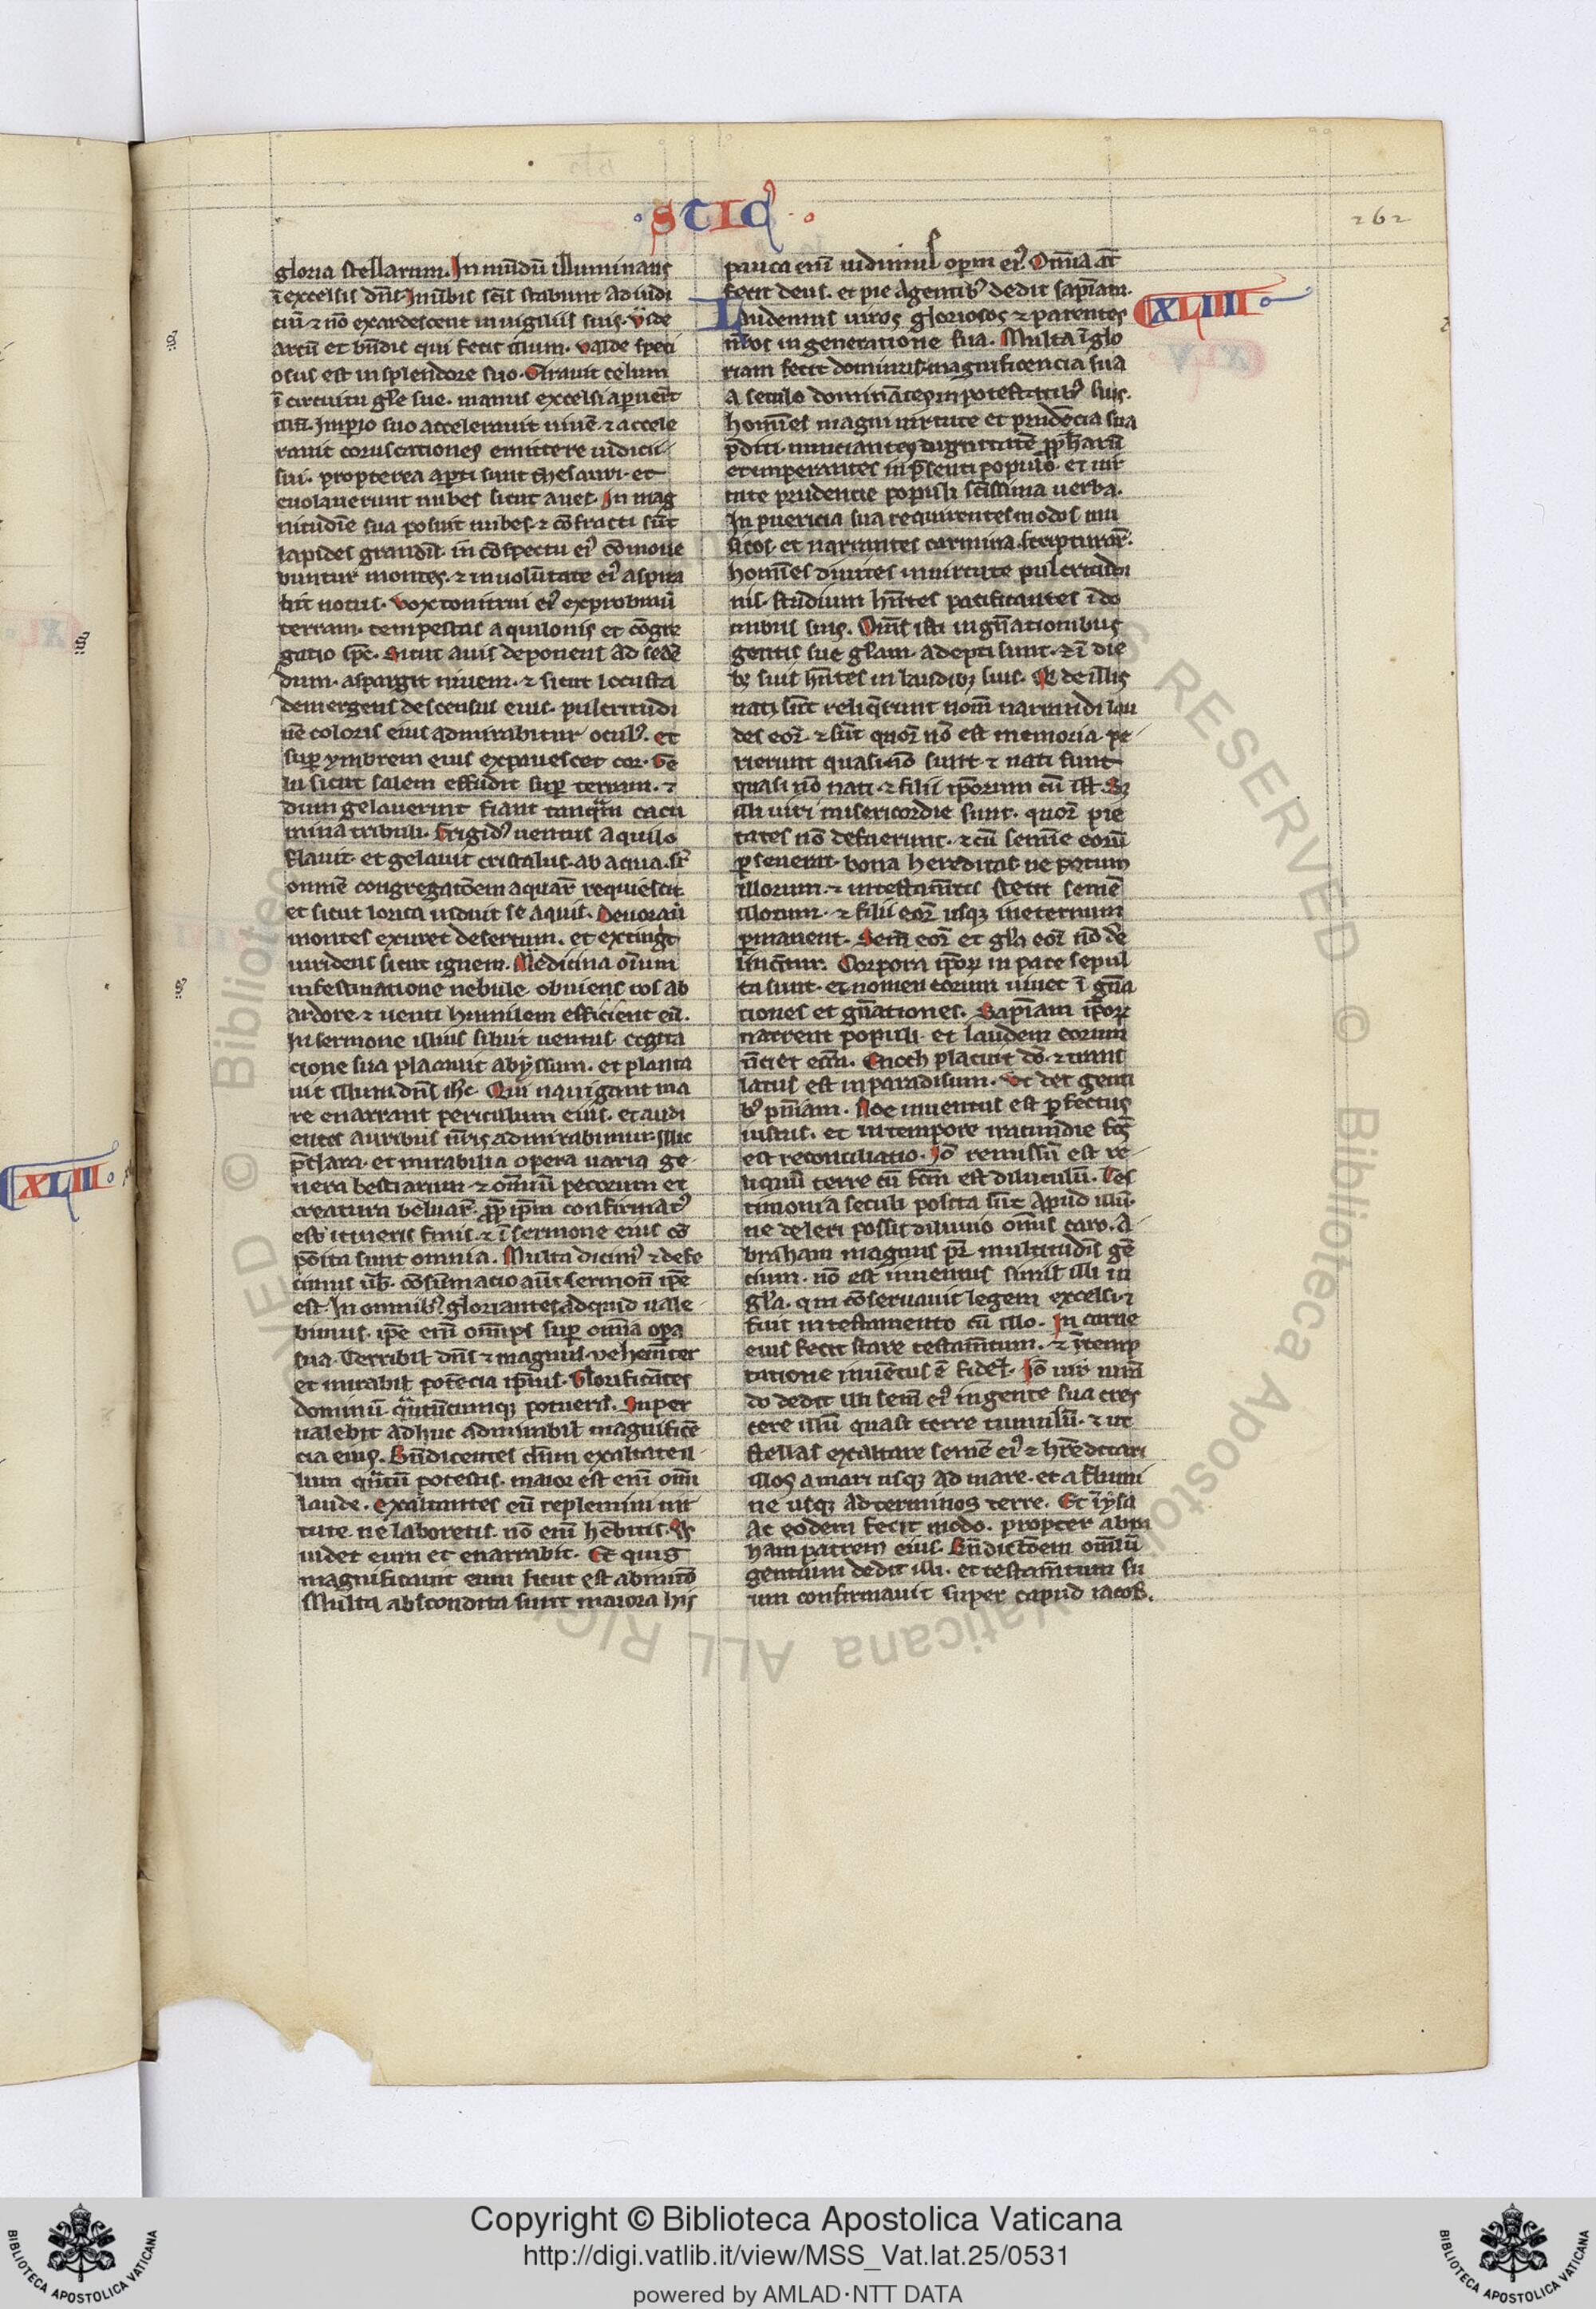 ·STIC·
262
gloria stellarum. In mūdū illuminans
ī excelsis dn̄s. In ūbis sc̄i stabunt ad iudi
ciū ⁊ nō exardescent in uigiliis suis. Vide
arcū et bn̄dic qui fecit illum. ualde speci
osus est in splendore suo. Girauit celum
ī circuitu gl̄e sue. manus excelsi aperuer̄t
illū. Imperio suo accelerauit niuē. ⁊ accele
rauit coruscationes emittere iudicii
sui. propterea aꝑti sunt thesauri. et
euolauerunt nubes sicut aues. In mag
nitudīe sua posuit nubes. ⁊ cōfracti sūt
lapides grandīs. in cōspectu eiꝰ cōmoue
buntur montes. ⁊ in uolūtate eiꝰ aspira
bit notus. Vox tonitrui eiꝰ exprobrauit
terram. tempestas aquilonis et cōgre
gatio sp̄c. Sicut auis deponens ad sedē
dum. aspargit niuem. ⁊ sicut locusta
demergens descensus eius. pulcritudi
nē coloris eius admirabitur oculꝰ. et
suꝑ ymbrem eius expauescet cor. Ge
lu sicut salem effudit suꝑ terram. ⁊
dum gelauerint fiant tanquam cacu
mina tribuli. Frigidꝰ uentus aquilo
flauit. et gelauit cristalus ab aqua. sr̄
omnē congregatōem aquaꝝ requiescit.
et sicut lorica induit se aquis. Deuorauit
montes exuret desertum. et extinguet
uiridens sicut ignem. Medicina oīum
in festinatione nebule. obuiens ros ab
ardore. ⁊ uenti humilem efficient eū.
In sermone illius siluit uentus. cogita
cione sua placauit abyssum. et planta
uit illum dn̄s ihc. Qui nauigant ma
re enarrant periculum eius. et audi
entes auribus n̄ris admirabimur. Illic
p̄clara. et mirabilia opera uaria ge
nera bestiarum ⁊ omniū pecorum et
creatura beluaꝝ. ꝓpt̄ ip̄m confirmatꝰ
est itineris finis. ⁊ ī sermone eius cō
posita sunt omnia. Multa dicimꝰ ⁊ defi
cimus ūb. cōsūmacio aūt sermonū ip̄e
est. In omnibꝰ gloriantes ad quid uale
bimus. ip̄e enī omīps suꝑ omīa opa
sua. Terribil' dn̄s ⁊ magnus uehemēter
et mirabil' potēcia ipsius. Glorificātes
dominū quātūcumqꝫ potueris. Super
ualebit adhuc admirabil' magnificē
cia eius. Bn̄dicentes dn̄um exaltate il
lum quātū potestis. maior est enī omī
laude. exaltantes eū replemini uir
tute. ne laboretis. nō enī hēbitis. Qs
uidet eum et enarrabit. Et quis
magnificauit eum sicut est ab inicio
Multa abscondita sunt maiora his
pauca enī uidimus operū eiꝰ. Omnia aūt
fecit deus. et pie agentibꝰ dedit sapīam.
Laudemus uiros gloriosos ⁊ parentes
XLIIII
nr̄os in generatione sua. Multā glo
riam fecit dominus magnificencia sua
a seculo dominātes in potestatibꝰ suis.
homīes magni uirtute et prudēcia sua
p̄diti. nunciantes dignitatē ꝓphetaꝝ
et imperantes in p̄senti populo. et uir
tute prudencie populis sc̄issima uerba.
In puericia sua requirentes modos mu
sicos. et narrantes carmina scripturaꝝ.
homīes diuites in uirtute pulcritudi
nis. studium hn̄tes pacificantes ī do
mibus suis. Om̄s isti in gn̄ationibus
gentis sue gl'am. adepti sunt. ⁊ ī die
bꝫ suis hn̄tes in laudibꝫ suis. Qi de illis
nati sūt reliquerunt nom̄ narrandi lau
des eoꝝ. ⁊ sūt quoꝝ nō est memoria. pe
rierunt quasi nō sunt ⁊ nati sunt
quasi nō nati. ⁊ filii ip̄orum cū ill'. Sꝫ
illi uiri misericordie sunt. quoꝝ pie
tates nō defuerunt. ⁊ cū semīe eorū
ꝑseuerat. bona hereditas nepotum
illorum. ⁊ in testam̄tis stetit semē
illorum. ⁊ filii eoꝝ usqꝫ in eternum
ꝑmanent. Sem̄ eoꝝ et gl'a eoꝝ nō de
linq̄tur. Corpora ip̄oꝝ in pace sepul
ta sunt. et nomen eorum uiuet ī gn̄a
tiones et gn̄ationes. Sapīam ip̄oꝝ
narrent populi. et laudem eorum
nūciet ecc̄a. Enoch placuit dō. ⁊ trans
latus est in paradisum. Vt det genti
bꝰ pn̄iam. Noe inuentus est ꝑfectus
iustus. et in tempore iracundie fc̄s
est reconciliatio. Iō remissū est re
liquū terre cū fc̄m est diluuium. Tes
timonia seculi posita sūt apud illū.
ne deleri possit diluuio om̄is caro. A
braham magnus pr̄ multitudīs gē
cium. nō est inuentus simil' illi in
gl'a. qui cōseruauit legem excelsi. ⁊
fuit in testamento cū illo. In carne
eius fecit stare testam̄tum. ⁊ ī temp
tatione inuētus ē fidel'. Iō iur iurā
do dedit illi sem̄ eiꝰ in gente sua cres
cere illū quasi terre tumulū. ⁊ ut
stellas exaltare semē eiꝰ ⁊ hr̄editari
illos a mari usqꝫ ad mare. et a flumi
ne usqꝫ ad terminos terre. Et ī ysa
ac eodem fecit modo. propter abra
ham patrem eius. Bn̄dictōem omīū
gentium dedit illi. et testam̄tum su
um confirmauit super capud iacob.
XLIII
Copyright © Biblioteca Apostolica Vaticana
http://digi.vatlib.it/view/MSS_Vat.lat.25/0531
powered by AMLAD·NTT DATA
BIBLIOTECA APOSTOLICA VATICANA
BIBLIOTECA APOSTOLICA VATICANA